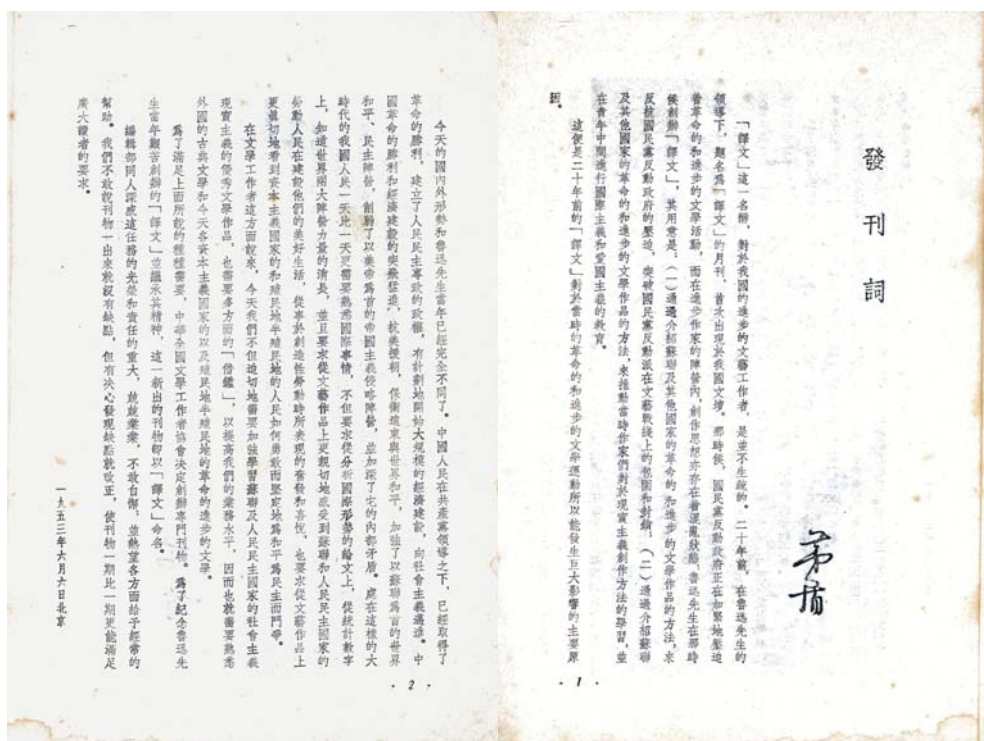 發刊詞
茅盾
「譯文」這一名辭,對於我國的進步的文藝工作者,是並不生疏的。二十年前,在魯迅先生的
領導下,題名爲「譯文」的月刊,首次出現於我國文壇。那時候,國民黨反動政府正在加緊地壓迫
着革命的和進步的文學活動,而在進步作家的陣營內,創作思想亦存在着混亂狀態。魯迅先生在那時
候創辦「譯文」,其用意是:(一)通過介紹蘇聯及其他國家的革命的和進步的文學作品的方法,來
反抗國民黨反動政府的壓迫,突破國民黨反動派在文藝戰綫上的包圍和封鎖;(二)通過介紹蘇聯
及其他國家的革命的和進步的文學作品的方法,來推動當時作家們對於現實主義創作方法的學習,並
在青年中間進行國際主義和愛國主義的教育。
這便是二十年前的「譯文」對於當時的革命的和進步的文學運動所以能發生巨大影響的主要原
因。
· 1 ·
今天的國內外形勢和魯迅先生當年已經完全不同了。中國人民在共產黨領導之下,已經取得了
革命的勝利,建立了人民民主專政的政權,有計劃地開始大規模的經濟建設,向社會主義邁進。中
國革命的勝利和經濟建設的突飛猛進,抗美援朝,保衛遠東與世界和平,加強了以蘇聯爲首的世界
和平、民主陣營,削弱了以美帝爲首的帝國主義侵略陣營,並加深了它的內部矛盾。處在這樣的大
時代的我國人民一天比一天更需要熟悉國際事情,不但要求從分析國際形勢的論文上,從統計數字
上,知道世界兩大陣營力量的消長,並且要求從文藝作品上更親切地感受到蘇聯和人民民主國家的
勞動人民在建設他們的美好生活,從事於創造性勞動時所表現的奮發和喜悅,也要求從文藝作品上
更眞切地看到資本主義國家的和殖民地半殖民地的人民如何勇敢而堅定地爲和平爲民主而鬥爭。
在文學工作者這方面說來,今天我們不但迫切地需要加強學習蘇聯及人民民主國家的社會主義
現實主義的優秀文學作品,也需要多方面的「借鑑」,以提高我們的業務水平,因而也就需要熟悉
外國的古典文學和今天各資本主義國家的以及殖民地半殖民地的革命的進步的文學。
爲了滿足上面所說的種種需要,中華全國文學工作者協會決定創辦專門刊物。爲了紀念魯迅先
生當年艱苦創辦的「譯文」並繼承其精神,這一新出的刊物卽以「譯文」命名。
編輯部同人深感這任務的光榮和責任的重大,兢兢業業,不敢自懈,並熱望各方面給予經常的
幫助。我們不敢說刊物一出來就沒有缺點,但有決心發現缺點就改正,使刊物一期比一期更能滿足
廣大讀者的要求。
一九五三年六月六日北京
· 2 ·